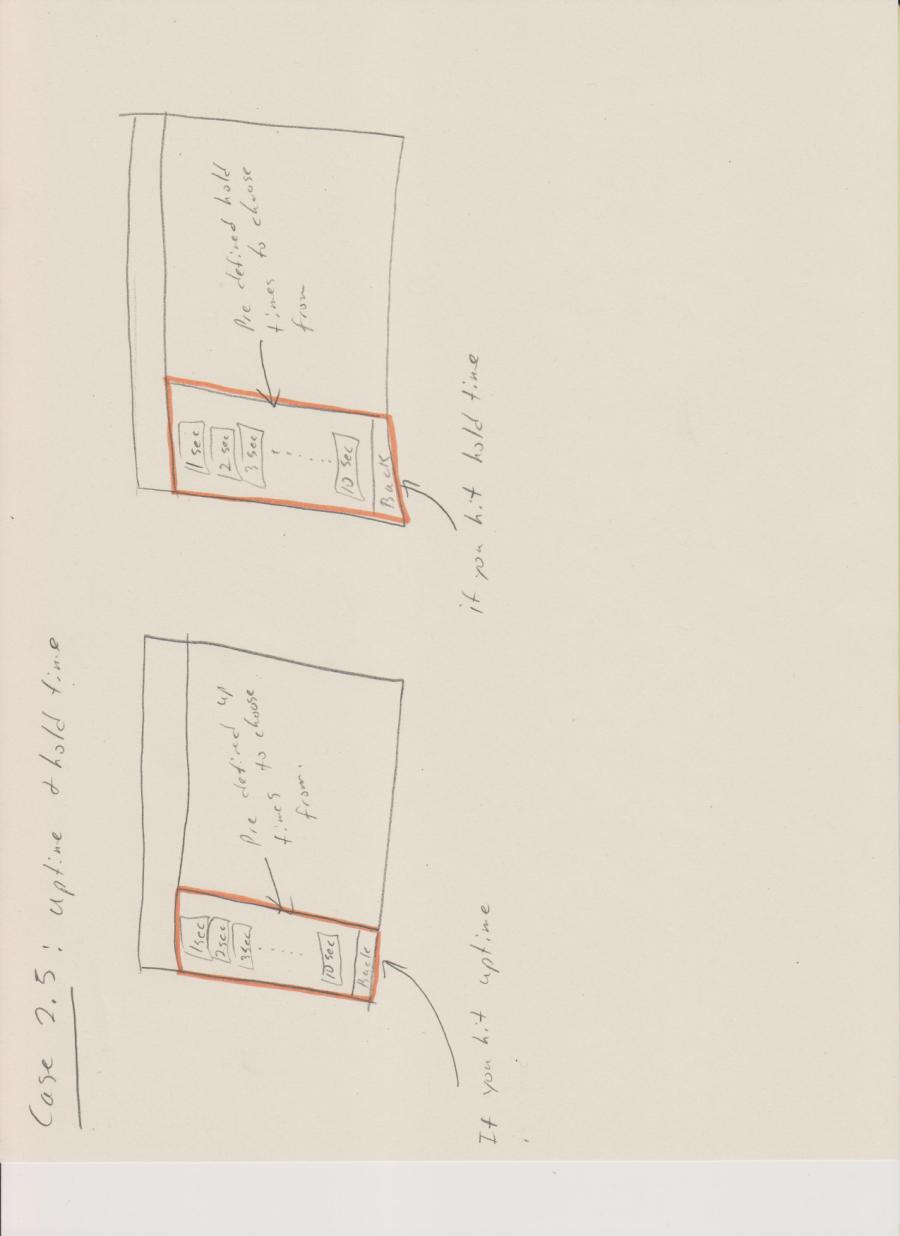 Case 2.5 : uptime & hold time
1sec
2sec
3sec
10 sec
Back
Pre defined up
times to choose
from.
If you hit uptime
1 sec
2 sec
3 sec
10 sec
Back
Pre defined hold
times to choose
from
if you hit hold time